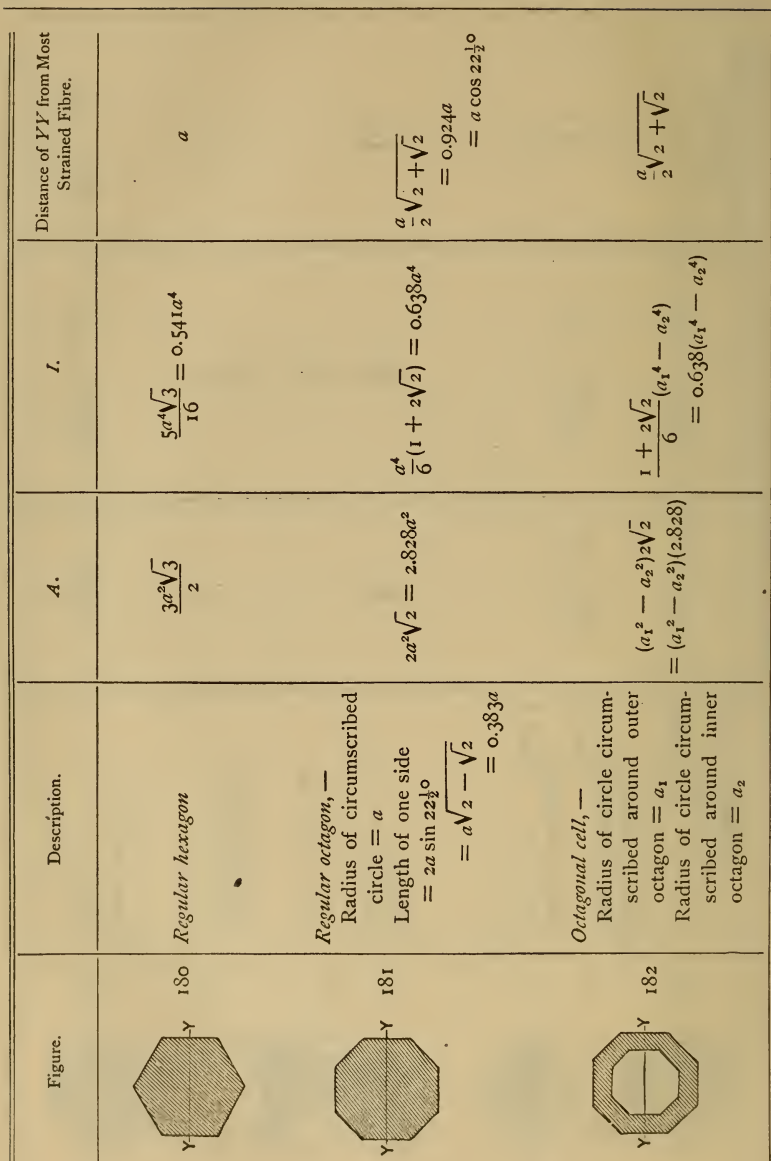 Figure.
Description.
A.
I.
Distance of YY from Most
Strained Fibre.
Y Y
180
Regular hexagon
3a²√3/2
5a⁴√3/16 = 0.541a⁴
a
Y Y
181
Regular octagon,—
Radius of circumscribed
circle = a
Length of one side
= 2a sin 22½°
= a√(2 − √2)
= 0.383a
2a²√2 = 2.828a²
a⁴/6(1 + 2√2) = 0.638a⁴
a/2√(2 + √2)
= 0.924a
= a cos 22½°
Y Y
182
Octagonal cell,—
Radius of circle circum-
scribed around outer
octagon = a₁
Radius of circle circum-
scribed around inner
octagon = a₂
(a₁² − a₂²)2√2
= (a₁² − a₂²)(2.828)
(1 + 2√2)/6(a₁⁴ − a₂⁴)
= 0.638(a₁⁴ − a₂⁴)
a/2√(2 + √2)